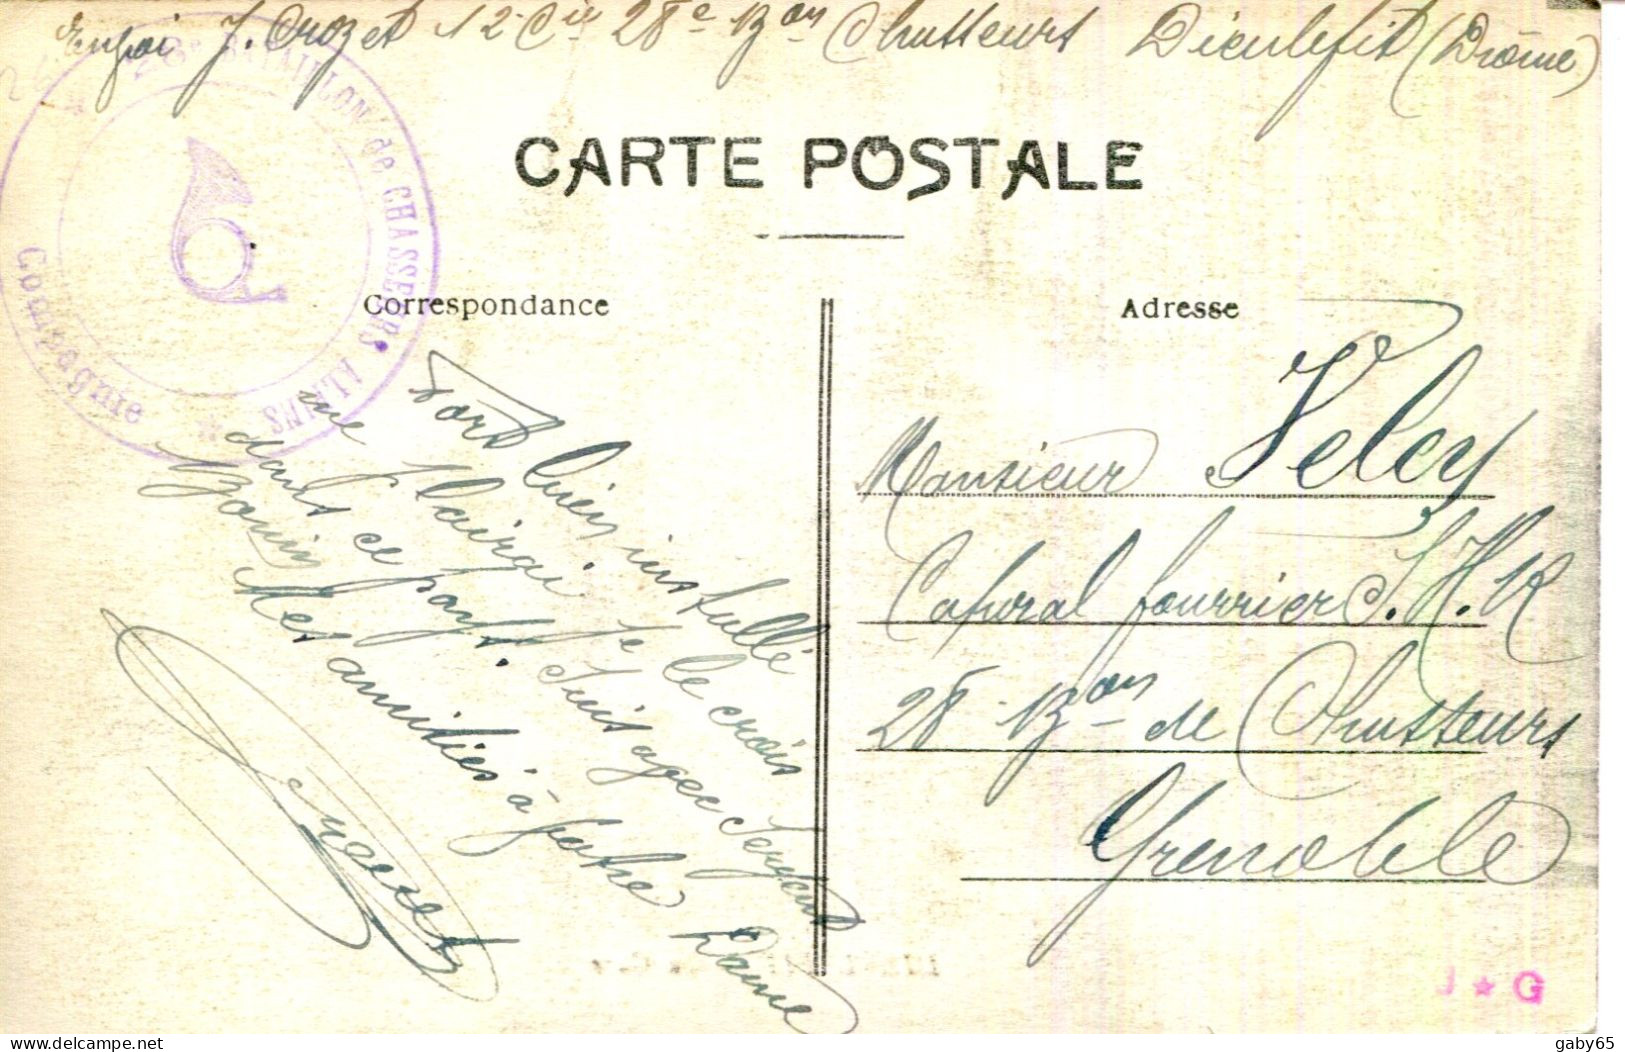 Envoi J. Crozet 12 Cie 28e Bon Chasseurs Dieulefit (Drôme)
28e BATAILLON de CHASSEURS ALPINS
Compagnie
CARTE POSTALE
Correspondance
Adresse
Fort bien installé
me plairai je le crois
dans ce pays. Suis avec Sergent
Bonin
Mes amitiés à votre Dame
Crozet
Monsieur Veley
Caporal fourrier S.H.R
28 Bon de Chasseurs
Grenoble
J ★ G
gaby65